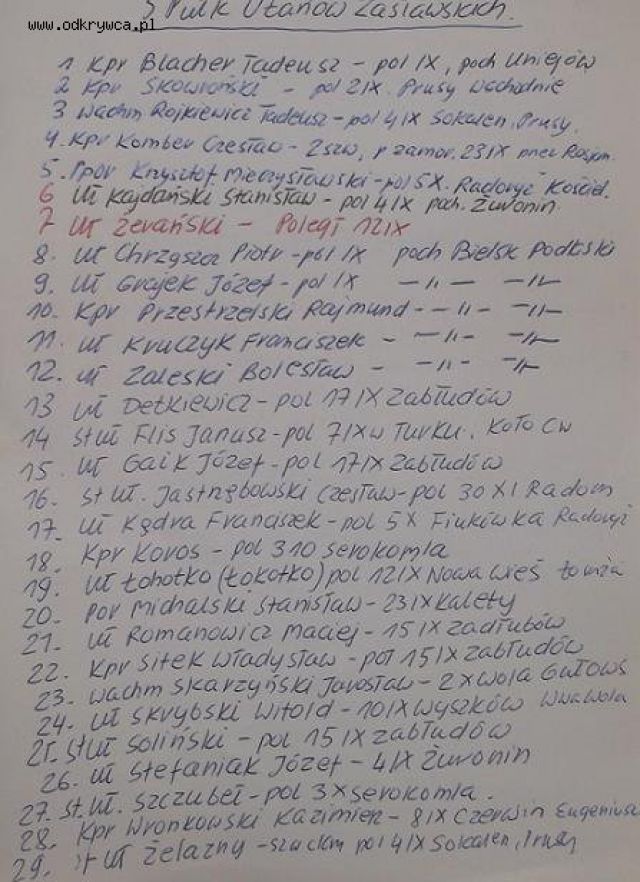 5 Pułk Ułanów Zasławskich.
www.odkrywca.pl
1 Kpr Blacher Tadeusz - pol IX, poch Uniejów
2 Kpr Skowroński - pol 2IX. Prusy Wschodnie
3 Wachm Rojkiewicz Tadeusz - pol 4IX Sokalen, Prusy.
4. Kpr Komber Czesław - 2szw, pzamor. 23IX przez Rosjan.
5. Ppor Krzysztof Mieczysławski - pol 5X. Radoryż Kościel.
6 Uł Kajdański Stanisław - pol 4IX poch. Żuronin
7 Uł Żerański - Poległ 12IX
8. Uł Chrząszcz Piotr - pol IX poch Bielsk Podlaski
9. Uł Grajek Józef - pol IX -"- -"-
10. Kpr Przestrzelski Rajmund - -"- -"-
11. Uł Kruczyk Franciszek - -"- -"-
12. Uł Zaleski Bolesław - -"- -"-
13 Uł Detkiewicz - pol 17IX Zabłudów
14 St Uł Flis Janusz - pol 7IX w Turku. Koło CW
15. Uł Gaik Józef - pol 17IX Zabłudów
16. St Uł. Jastrzębowski Czesław - pol 30 XI Radom
17. Uł Kędra Franciszek - pol 5X Fiukówka Radoryż
18. Kpr Koros - pol 3 10 Serokomla
19. Uł Łohotko (Łokotko) pol 12IX Nowa Wieś Łomża
20. Por Michalski Stanisław - 23IX Kalety
21. Uł Romanowicz Maciej - 15IX Zadłubów
22. Kpr Sitek Władysław - pol 15IX Zabłudów
23. Wachm Skarzyński Jarosław - 2X Wola Gułows
24. Uł Skrybski Witold - 10IX Wyszków Wwa Wola
25. St Uł Soliński - pol 15IX Zabłudów
26. Uł Stefaniak Józef - 4IX Żuronin
27. St. Uł. Szczubeł - pol 3X Serokomla.
28. Kpr Wronkowski Kazimierz - 8IX Czerwin Eugeniusz
29. St Uł Żelazny - pol 4IX Sokalen, Prusy